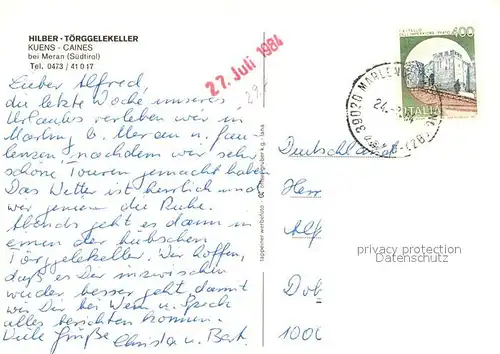 HILBER - TÖRGGELEKELLER
KUENS - CAINES
bei Meran (Südtirol)
Tel. 0473 / 41 0 17
27. Juli 1984
Lieber Alfred,
die letzte Woche unseres
Urlaubes verleben wir in
Marling b. Meran u. faulenzen,
nachdem wir sehr
schöne Touren gemacht haben.
Das Wetter ist herrlich und
wir genießen die Ruhe.
Abends geht es dann in
einen der hübschen
Törggelekeller. Wir hoffen,
daß es Dir inzwischen
wieder besser geht, damit
wir Dir bei Wein u. Speck
alles berichten können.
Viele Grüße Christa u. Bert.
tappeiner werbefoto
400
ITALIA
39020 MARLENGO
Deutschland
Herr
Alf
Dob
1000
privacy protection
Datenschutz